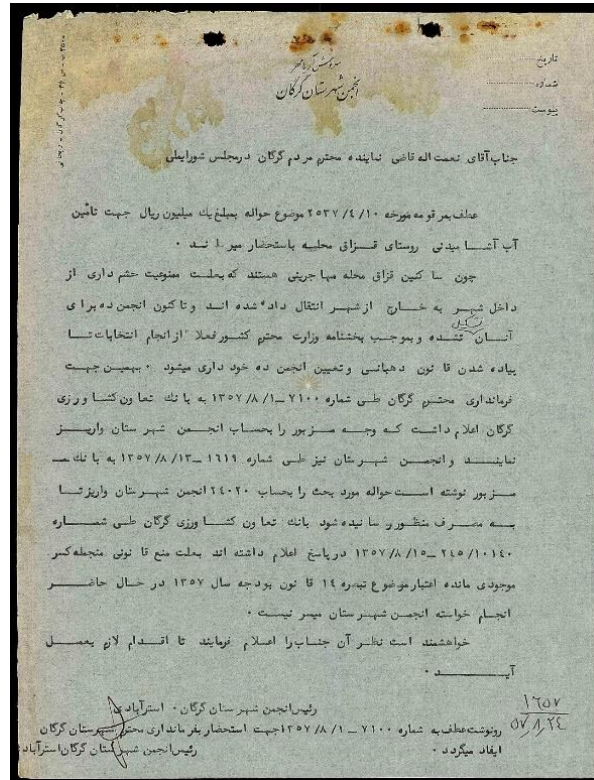 انجمن شهرستان گرگان
تاریخ
شماره
پیوست
جناب آقای نعمت اله قاضی نماینده محترم مردم گرگان در مجلس شورایملی
عطف بمرقومه مورخه ۲۵۳۷/۴/۱۰ موضوع حواله بمبلغ یک میلیون ریال جهت تأمین
آب آشامیدنی روستای قزاق محله باستحضار میرساند .
چون ساکنین قزاق محله مهاجرینی هستند که بعلت ممنوعیت حشم داری از
داخل شهر به خارج از شهر انتقال داده شده اند و تاکنون انجمن ده برای
آنان تشکیل نشده و بموجب بخشنامه وزارت محترم کشور فعلا از انجام انتخابات تا
پیاده شدن قانون دهبانی و تعیین انجمن ده خود داری میشود . بهمین جهت
فرمانداری محترم گرگان طی شماره ۷۱۰۰ – ۱۳۵۷/۸/۱ به بانک تعاون کشاورزی
گرگان اعلام داشت که وجه مزبور را بحساب انجمن شهرستان واریز
نمایند و انجمن شهرستان نیز طی شماره ۱۶۱۹ – ۱۳۵۷/۸/۱۳ به بانک
مزبور نوشته است حواله مورد بحث را بحساب ۲۴۰۲۰ انجمن شهرستان واریز تا
به مصرف منظور رسانیده شود بانک تعاون کشاورزی گرگان طی شماره
۲۴۵/۱۰۱۴۰ – ۱۳۵۷/۸/۱۵ در پاسخ اعلام داشته اند بعلت منع قانونی منجمله کسر
موجودی مانده اعتبار موضوع تبصره ۱۴ قانون بودجه سال ۱۳۵۷ در حال حاضر
انجام خواسته انجمن شهرستان میسر نیست .
خواهشمند است نظر آن جناب را اعلام فرمایند تا اقدام لازم بعمل
آید .
رئیس انجمن شهرستان گرگان . استرآبادی
رونوشت عطف به شماره ۷۱۰۰ – ۱۳۵۷/۸/۱ جهت استحضار بفرمانداری محترم شهرستان گرگان
ایفاد میگردد .
رئیس انجمن شهرستان گرگان استرآبادی
۱۶۵۷
۵۷/۸/۲۴